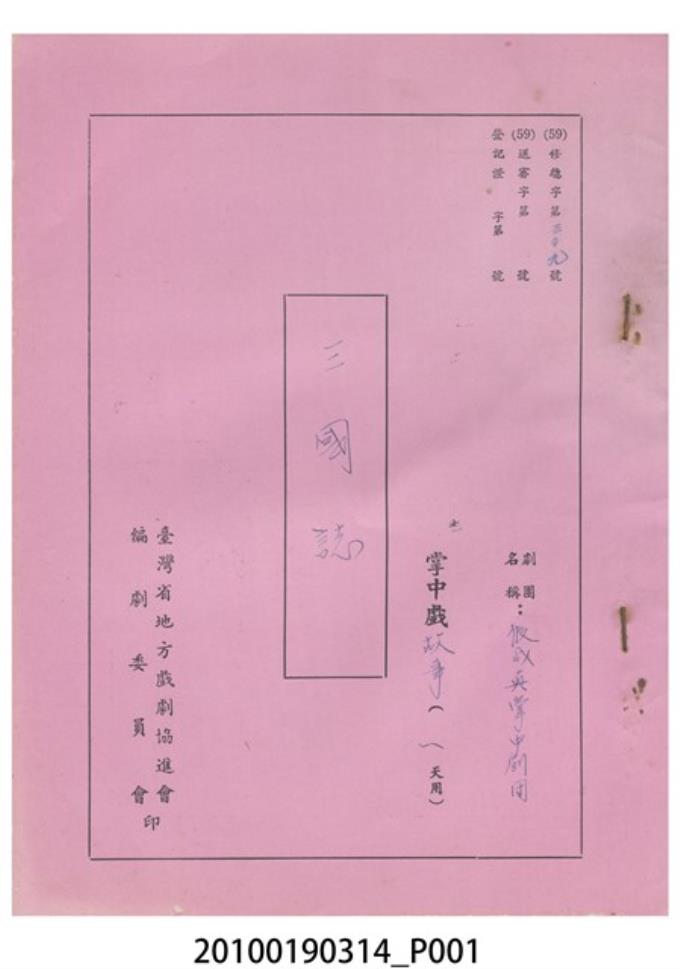 (59)修字第九號
(59)送審字第 號
登記證 字第 號
劇團名稱：英掌中劇団
掌中戲故事(一天用)
三國誌
臺灣省地方戲劇協進會
編劇委員會印
20100190314_P001